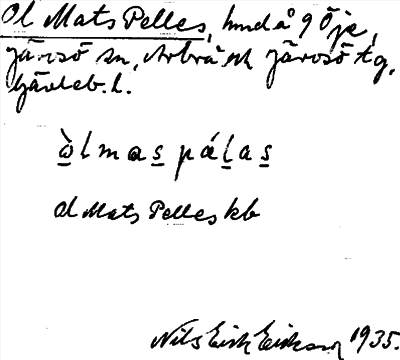 Ol Mats Pelles, hmd å 9 Öje,
Järvsö sn, Arbrå och Järvsö tg,
Gävleb. l.
ò̱lmas̱ páḻas̱
Ol Mats Pelles kb
Nils Erik Eriksson 1935.